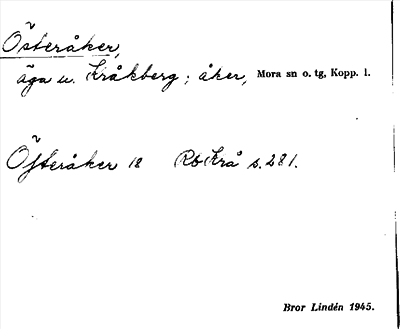 Österåker,
äga u. Kråkberg; åker, Mora sn o. tg, Kopp. l.
Öfteråker 18 Rb Krå s. 281.
Bror Lindén 1945.